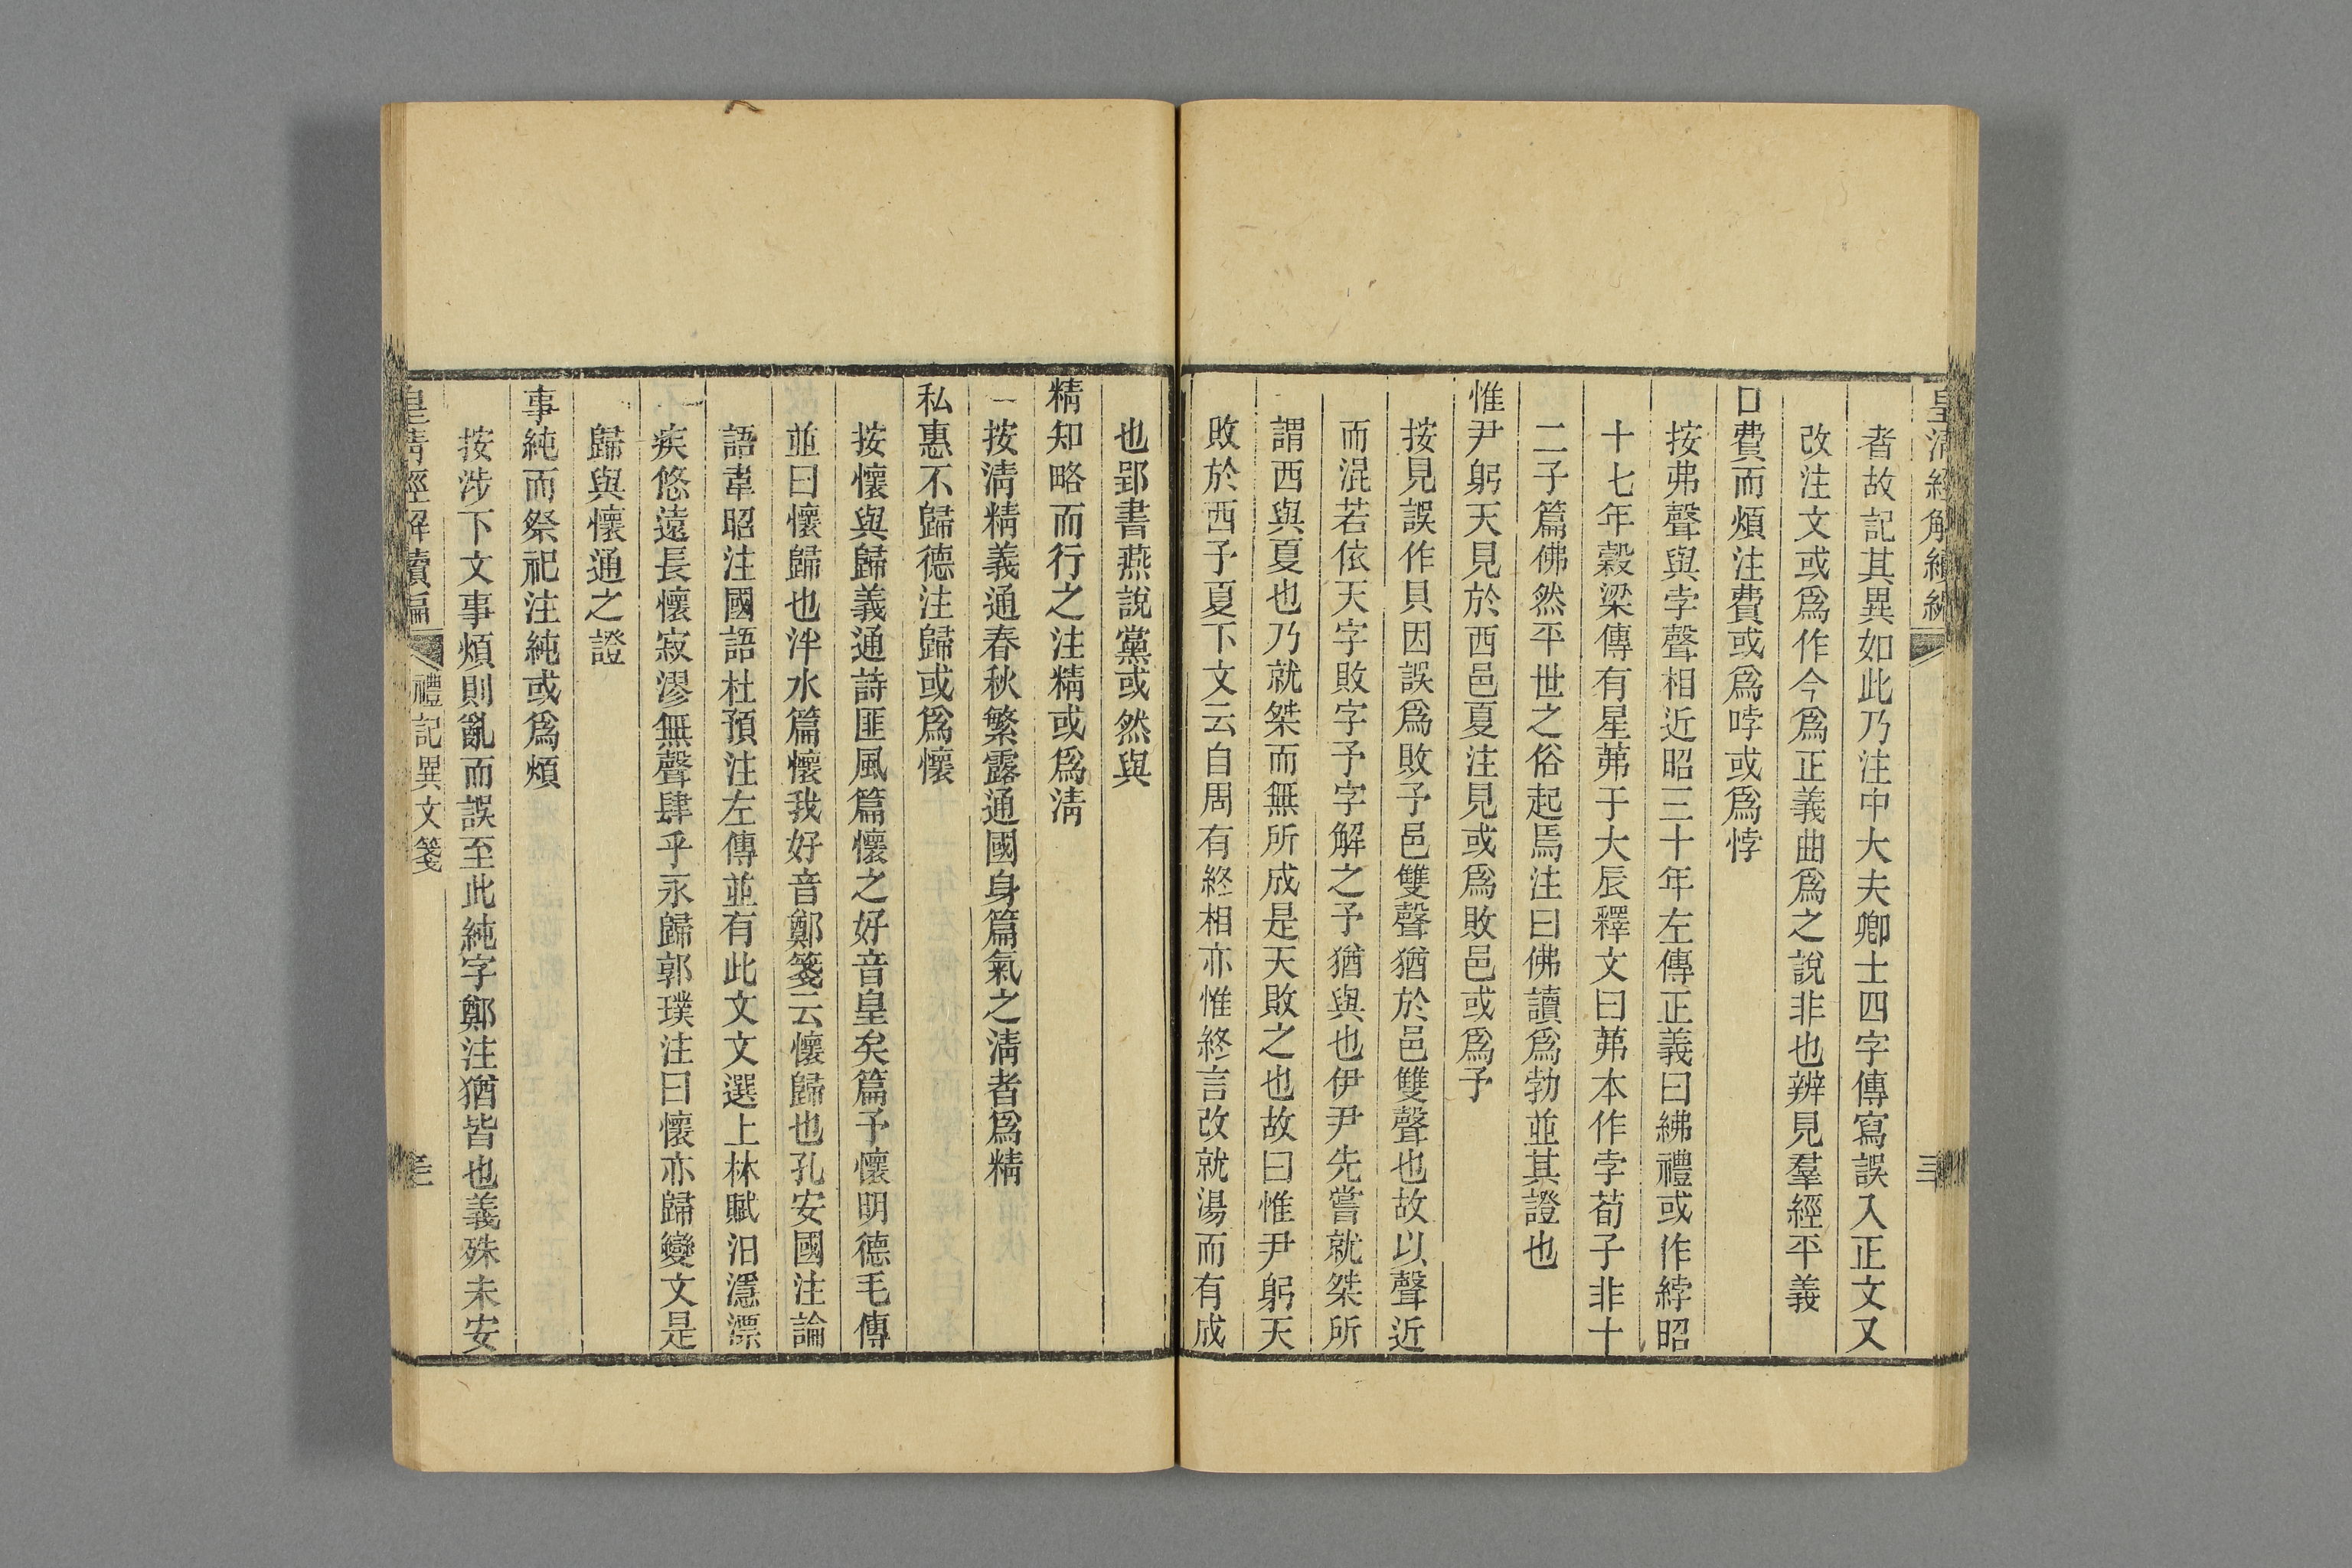 皇清經解續編
三
者故記其異如此乃注中大夫卿士四字傳寫誤入正文又
改注文或爲作今爲正義曲爲之說非也辨見羣經平義
口費而煩注費或爲哱或爲悖
按弗聲與孛聲相近昭三十年左傳正義曰紼禮或作綍昭
十七年穀梁傳有星茀于大辰釋文曰茀本作孛荀子非十
二子篇佛然平世之俗起焉注曰佛讀爲勃並其證也
惟尹躬天見於西邑夏注見或爲敗邑或爲予
按見誤作貝因誤爲敗予邑雙聲猶於邑雙聲也故以聲近
而混若依天字敗字予字解之予猶與也伊尹先嘗就桀所
謂西與夏也乃就桀而無所成是天敗之也故曰惟尹躬天
敗於西予夏下文云自周有終相亦惟終言改就湯而有成
也郢書燕說黨或然與
精知略而行之注精或爲淸
按淸精義通春秋繁露通國身篇氣之淸者爲精
私惠不歸德注歸或爲懷
按懷與歸義通詩匪風篇懷之好音皇矣篇予懷明德毛傳
並曰懷歸也泮水篇懷我好音鄭箋云懷歸也孔安國注論
語韋昭注國語杜預注左傳並有此文文選上林賦汨濦漂
疾悠遠長懷寂漻無聲肆乎永歸郭璞注曰懷亦歸變文是
歸與懷通之證
事純而祭祀注純或爲煩
按涉下文事煩則亂而誤至此純字鄭注猶皆也義殊未安
皇淸經解續編
禮記異文箋
三